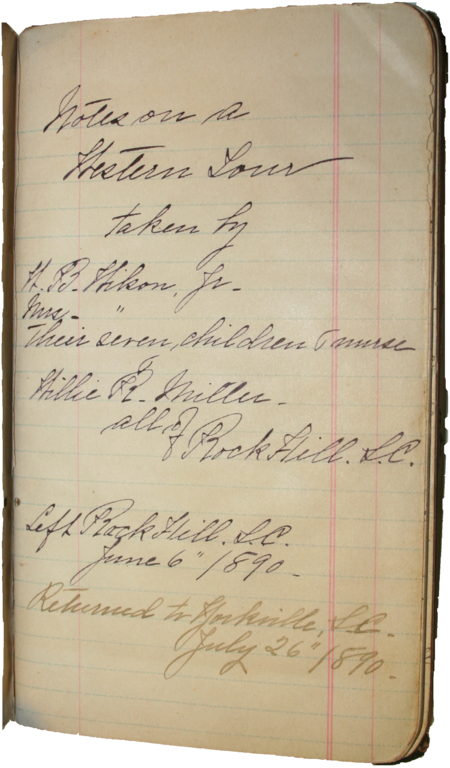 Notes on a
Western Tour
taken by
W. B. Wilson, Jr-
Mrs- "
Their seven, children & nurse
&
Willie R. Miller-
all of
Rock Hill. S.C.
Left Rock Hill. S.C.
June 6" 1890-
Returned to Yorkville, S.C-
July 26" 1890-